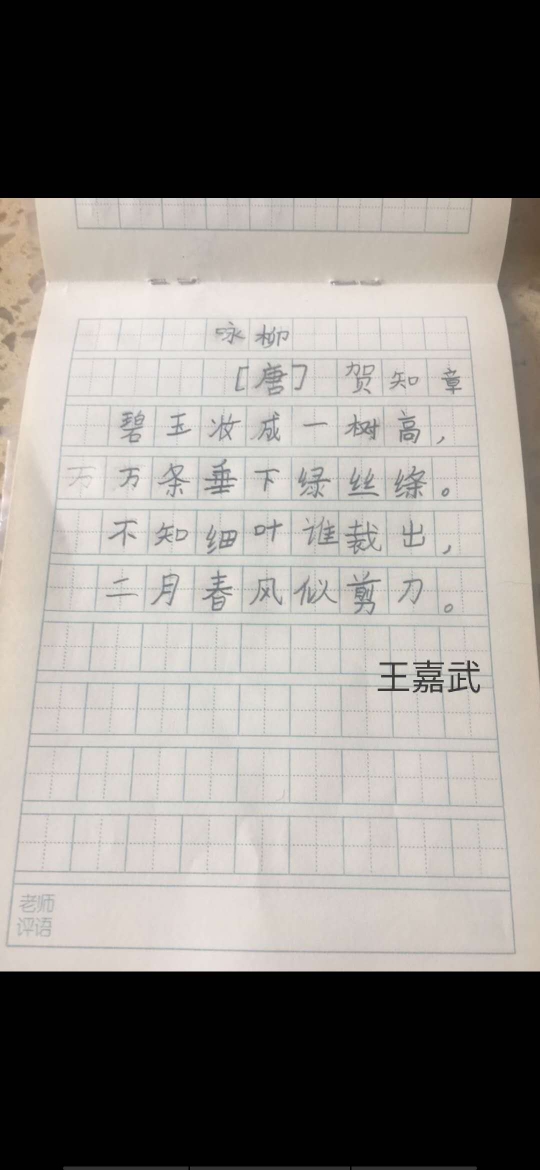 咏柳
[唐] 贺知章
碧玉妆成一树高，
万条垂下绿丝绦。
不知细叶谁裁出，
二月春风似剪刀。
王嘉武
老师
评语